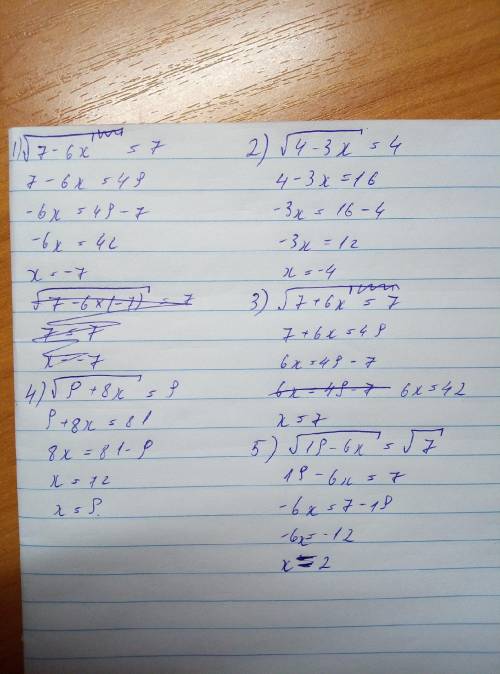 1) √7 - 6x = 7
7 - 6x = 49
-6x = 49 - 7
-6x = 42
x = -7
√7 - 6×(-7) = 7
7 = 7
x = -7
4) √9 + 8x = 9
9 + 8x = 81
8x = 81 - 9
x = 12
x = 9.
2) √4 - 3x = 4
4 - 3x = 16
-3x = 16 - 4
-3x = 12
x = -4
3) √7 + 6x = 7
7 + 6x = 49
6x = 49 - 7
6x = 49 - 7 6x = 42
x = 7
5) √19 - 6x = √7
19 - 6x = 7
-6x = 7 - 19
-6x = -12
x = 2